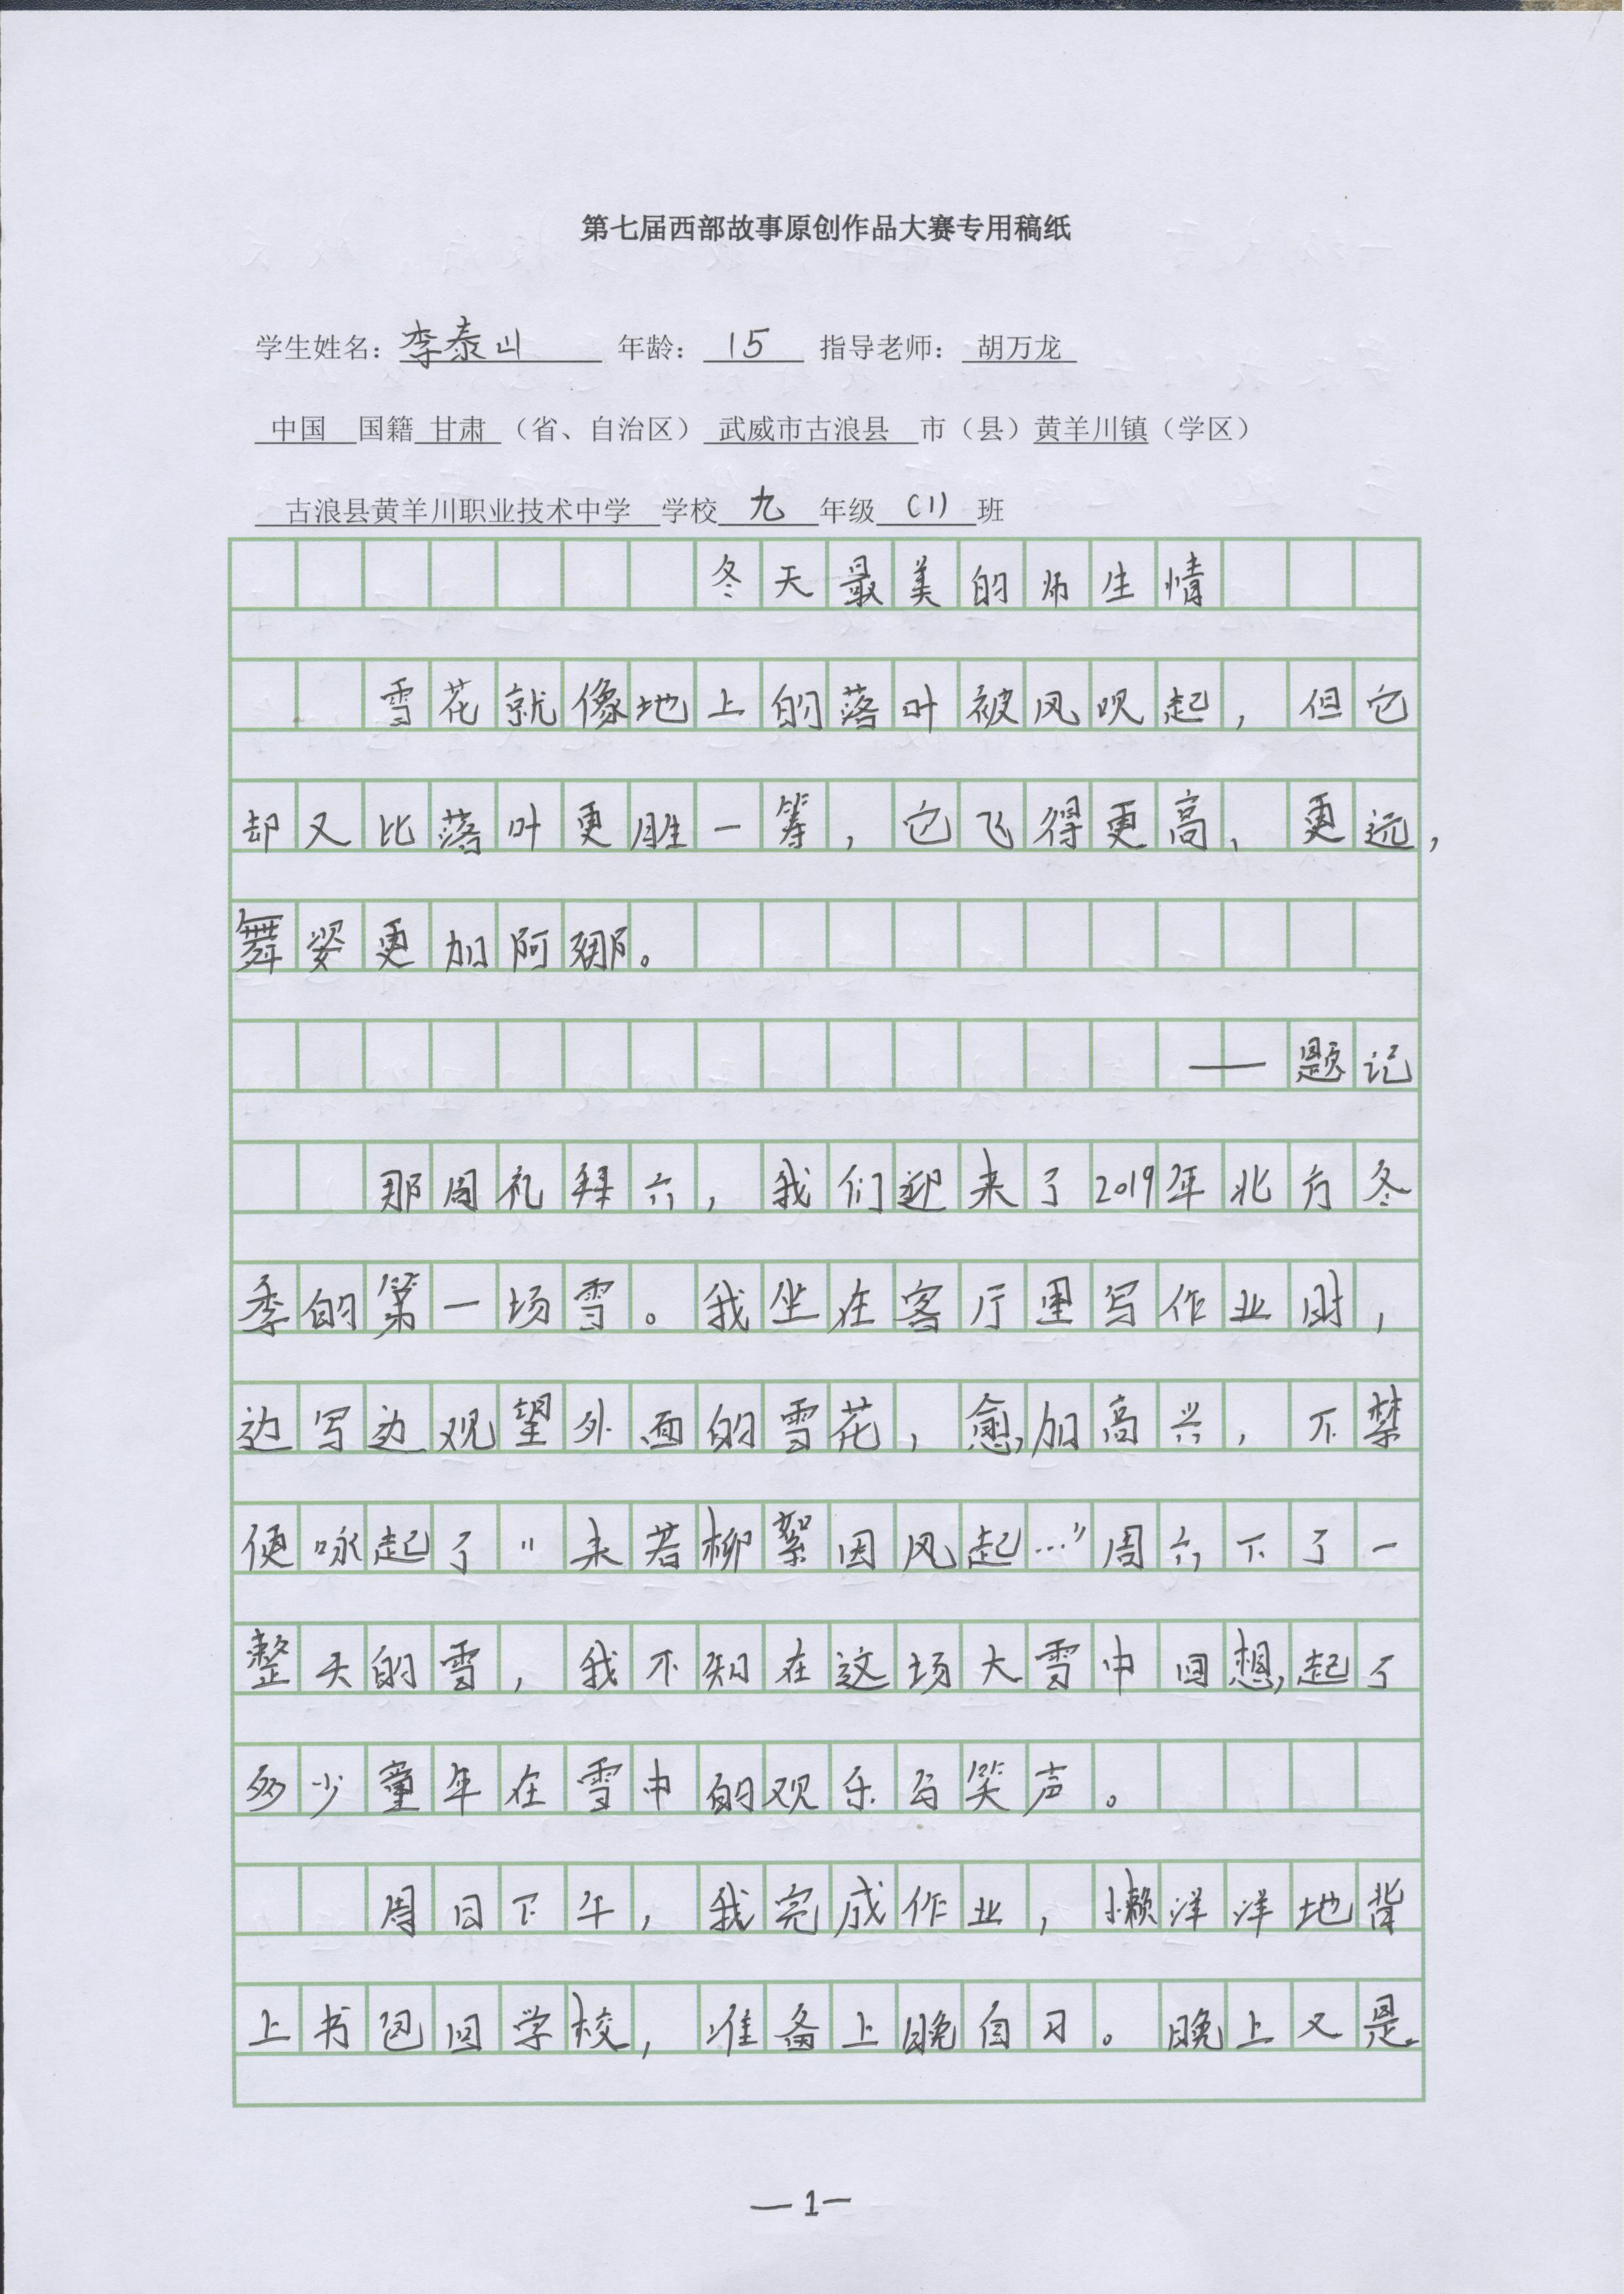 第七届西部故事原创作品大赛专用稿纸
学生姓名：李泰山 年龄：15 指导老师：胡万龙
中国 国籍 甘肃（省、自治区）武威市古浪县 市（县）黄羊川镇（学区）
古浪县黄羊川职业技术中学 学校 九 年级（1）班
冬天最美的师生情
雪花就像地上的落叶被风吹起，但它
却又比落叶更胜一筹，它飞得更高，更远，
舞姿更加阿娜。
——题记
那周礼拜六，我们迎来了2019年北方冬
季的第一场雪。我坐在客厅里写作业时，
边写边观望外面的雪花，愈加高兴，不禁
便咏起了“未若柳絮因风起…”周六下了一
整天的雪，我不知在这场大雪中回想起了
多少童年在雪中的观乐与笑声。
周日下午，我完成作业，懒洋洋地背
上书包回学校，准备上晚自习。晚上又是
—1—